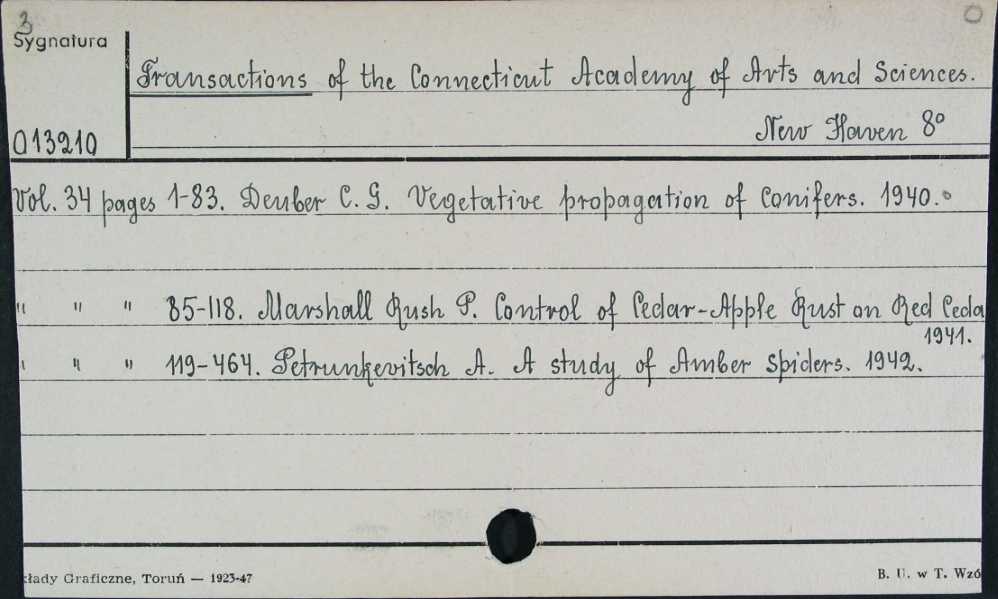 3
Sygnatura
0
Transactions of the Connecticut Academy of Arts and Sciences.
New Haven 8º
013210
Vol. 34 pages 1-83. Deuber C. G. Vegetative propagation of Conifers. 1940.
" " " 85-118. Marshall Rush P. Control of Cedar-Apple Rust on Red Ceda
1941.
" " " 119-464. Petrunkevitsch A. A study of Amber Spiders. 1942.
łady Graficzne, Toruń — 1923-47
B. U. w T. Wzó